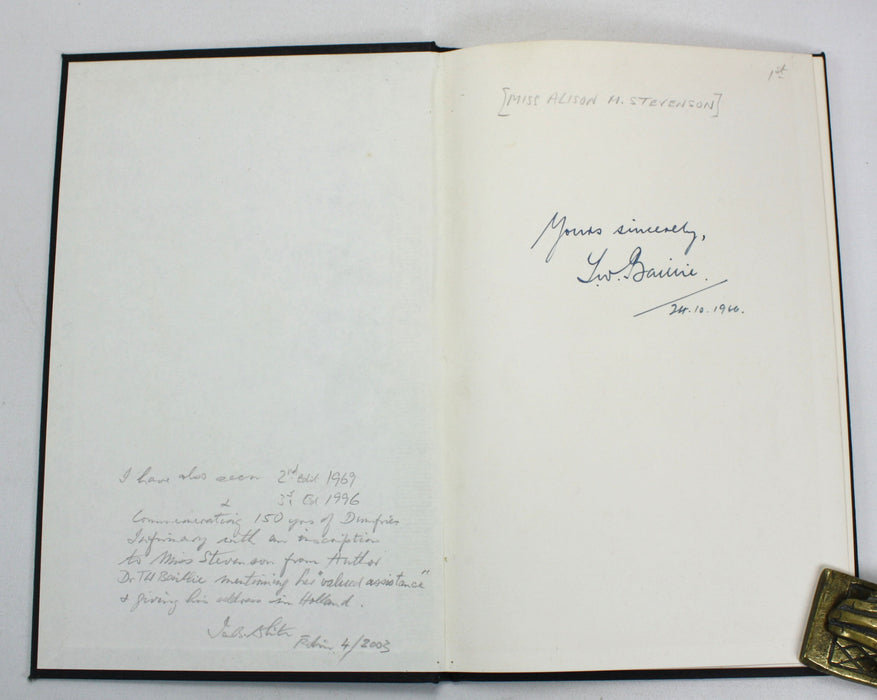 I have also seen 2nd Edit 1969
& 3rd Ed 1996
Commemorating 150 yrs of Dumfries
Infirmary with an inscription
to Miss Stevenson from Author
Dr TW Baillie mentioning her "valued assistance"
& giving his address in Holland.
Edin 4/2003
1st
[MISS ALISON M. STEVENSON]
Yours sincerely,
T.W. Baillie.
24.10.1966.